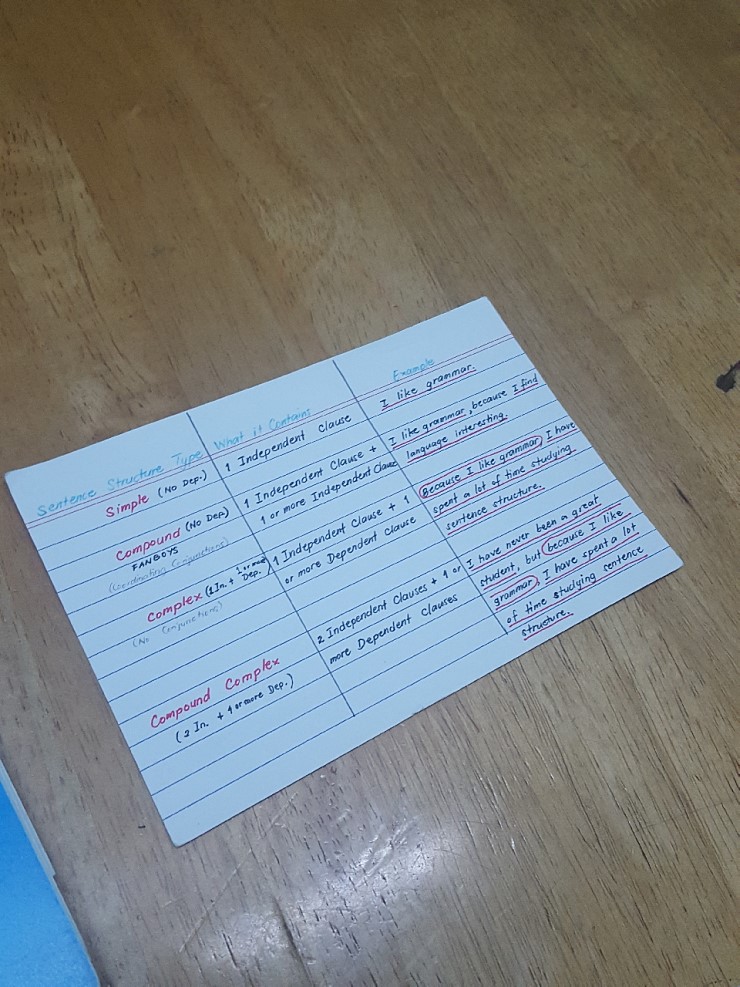 Sentence Structure Type What it Contains Example
Simple (No Dep.)
1 Independent Clause
I like grammar.
Compound (No Dep)
FANBOYS
(Coordinating Conjunctions)
1 Independent Clause +
1 or more Independent Clause
I like grammar, because I find
language interesting.
Complex (1 In. + 1 or more Dep.)
(No Conjunctions)
1 Independent Clause + 1
or more Dependent clause
Because I like grammar, I have
spent a lot of time studying
sentence structure.
Compound Complex
(2 In. + 1 or more Dep.)
2 Independent Clauses + 1 or
more Dependent Clauses
I have never been a great
student, but because I like
grammar, I have spent a lot
of time studying sentence
structure.